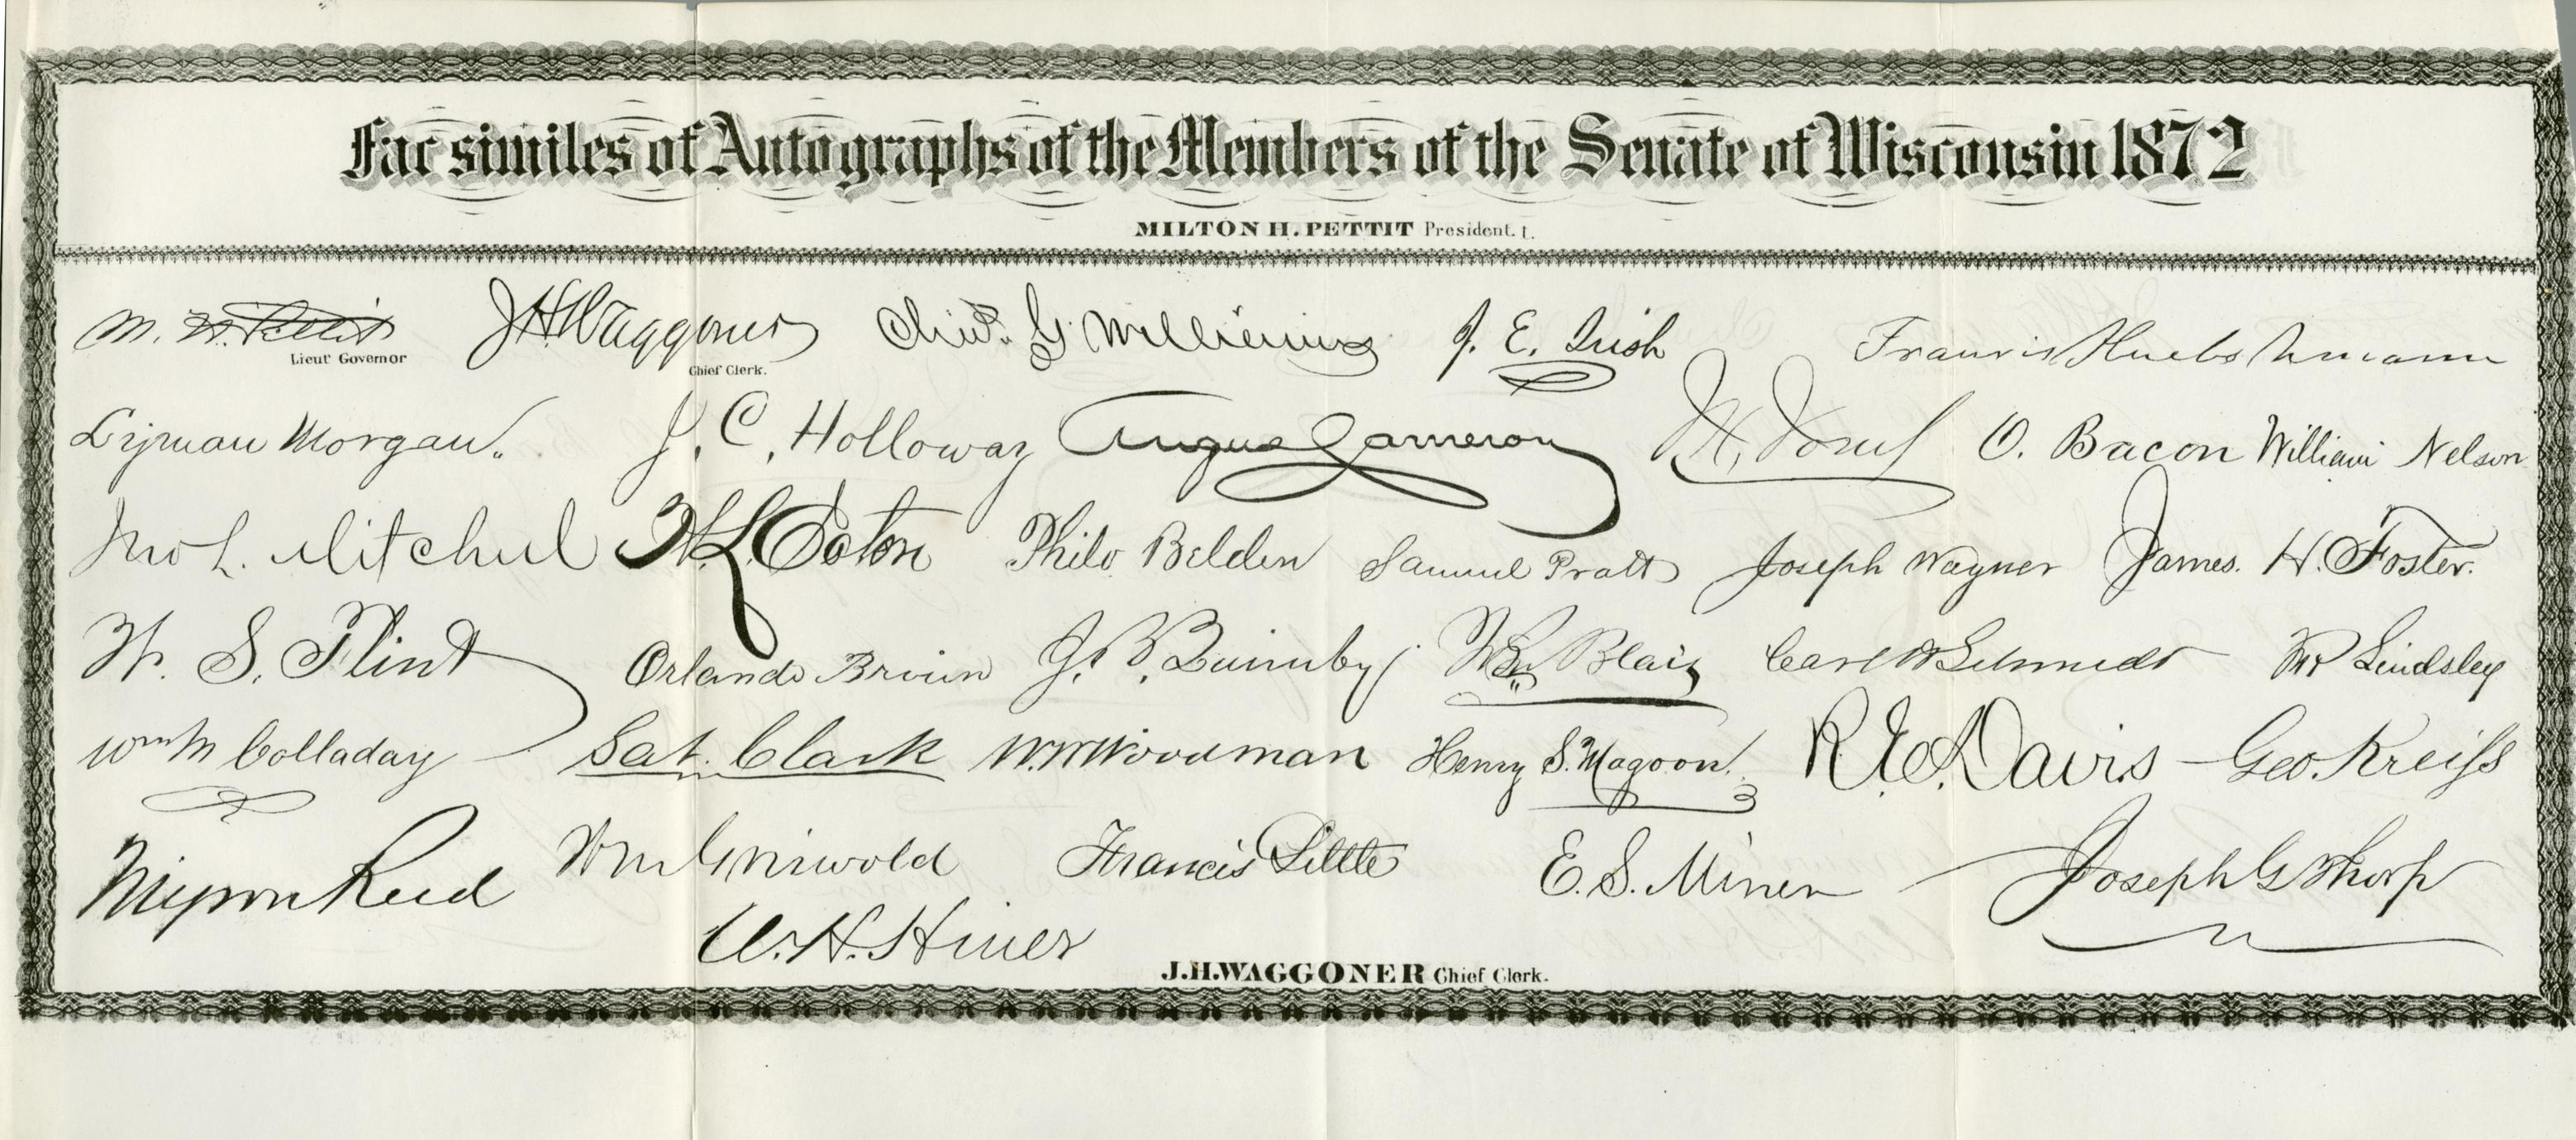 Fac similes of Autographs of the Members of the Senate of Wisconsin 1872
MILTON H. PETTIT President. t.
M. H. Pettit J H Waggoner Chas. G Williams J. E. Irish Francis Huebschmann
Lieut Governor Chief Clerk.
Lyman Morgan. J. C. Holloway Angus Cameron O. Bacon William Nelson
Jno L. Mitchell H. L. Eaton Philo Belden Samuel Pratt Joseph Wagner James. H. Foster.
W. S. Flint Orlando Brown J. B. Quimby Wm Blair Carl H Schmidt M P Lindsley
Wm M Colladay Sat. Clark W. W Woodman Henry S. Magoon. R. E. Davis Geo. Kreiss
Myron Reed Wm Griswold Francis Little E. S. Miner Joseph G Thorp
W. H. Hiner
J.H.WAGGONER Chief Clerk.